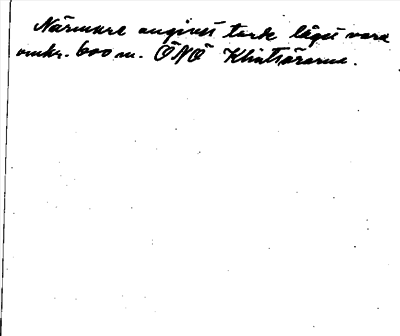 Närmare angivet torde läget vara
omkr. 600 m. ÖNÖ Klintsärarna.